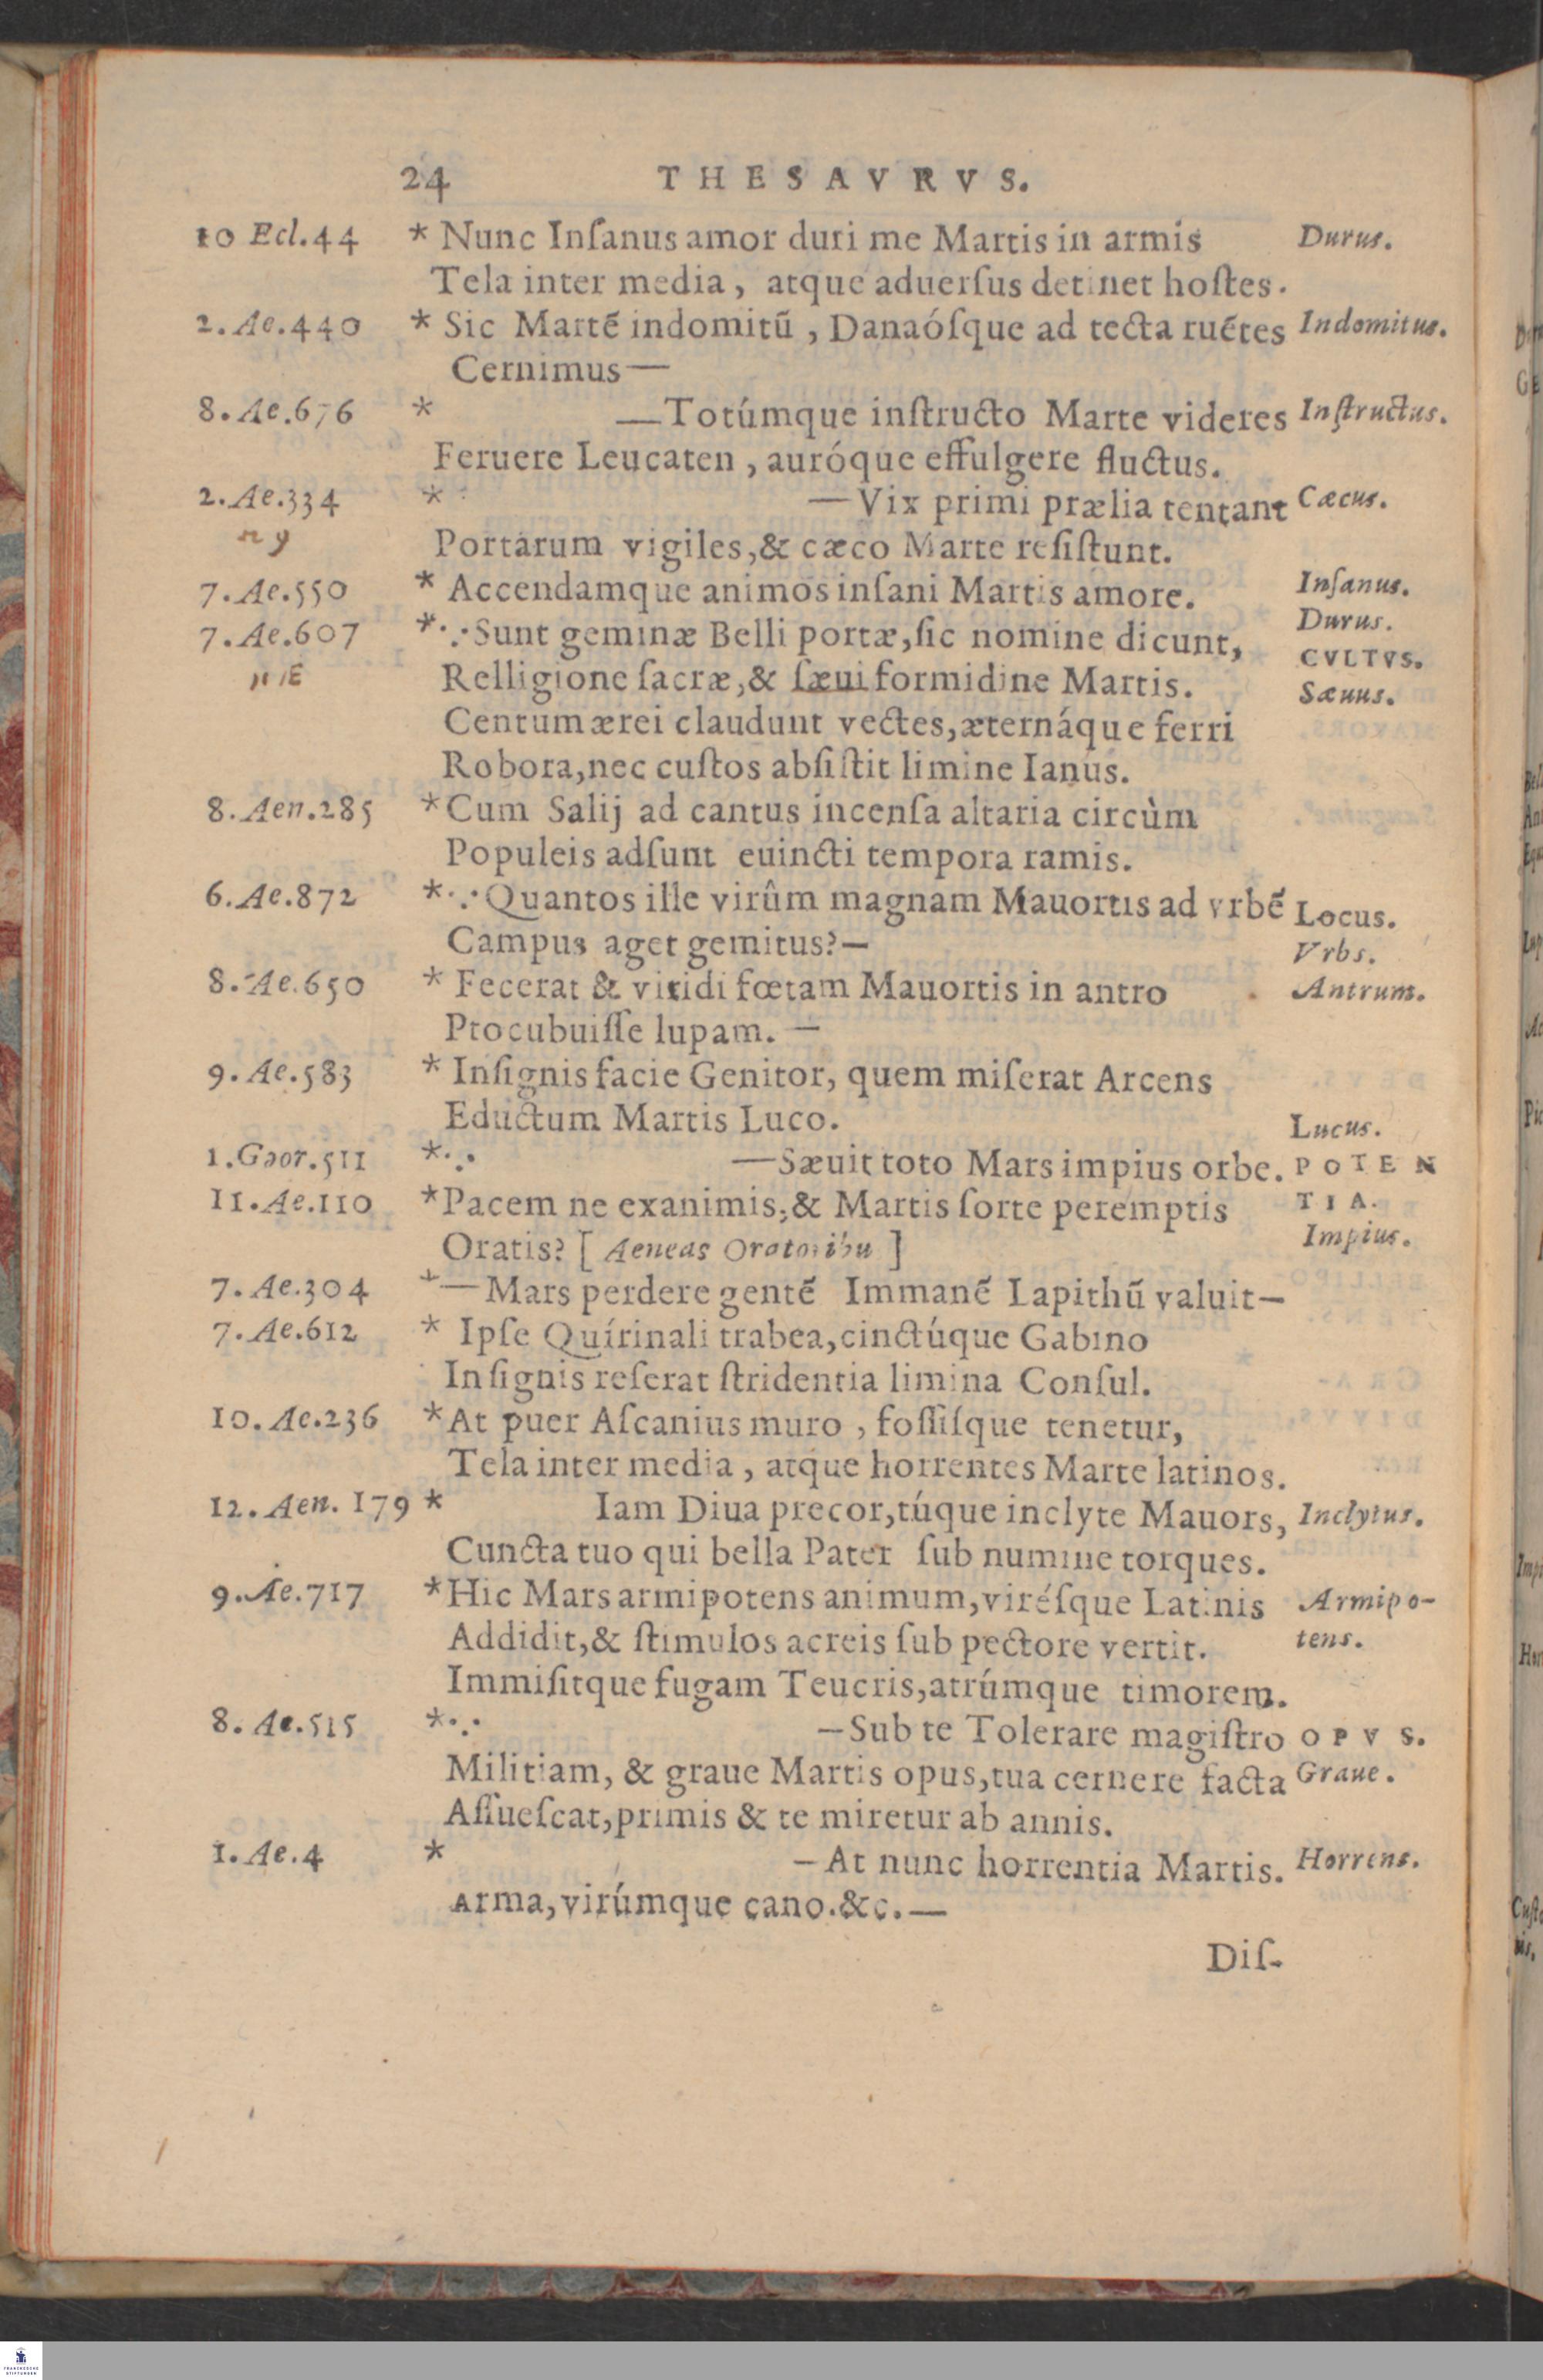 24 THESAVRVS.
10 Ecl.44 * Nunc Inſanus amor duri me Martis in armis Durus.
Tela inter media, atque aduerſus detinet hoſtes.
2. Ae.440 * Sic Martẽ indomitũ, Danaóſque ad tecta ruẽtes Indomitus.
Cernimus—
8. Ae.676 * —Totúmque inſtructo Marte videres Inſtructus.
Feruere Leucaten, auróque effulgere fluctus.
2. Ae.334 * —Vix primi prælia tentant Cæcus.
Portarum vigiles,& cæco Marte reſiſtunt.
7. Ae.550 * Accendamque animos inſani Martis amore. Inſanus.
7. Ae.607 *∵Sunt geminæ Belli portæ,ſic nomine dicunt, Durus.
CVLTVS.
Relligione ſacræ,& ſæui formidine Martis. Sæuus.
Centum ærei claudunt vectes,æternáque ferri
Robora,nec cuſtos abſiſtit limine Ianus.
8. Aen.285 *Cum Salij ad cantus incenſa altaria circùm
Populeis adſunt euincti tempora ramis.
6. Ae.872 *∵Quantos ille virûm magnam Mauortis ad vrbẽ Locus.
Campus aget gemitus?— Vrbs.
8. Ae.650 * Fecerat & viridi fœtam Mauortis in antro Antrum.
Procubuiſſe lupam. —
9. Ae.583 * Inſignis facie Genitor, quem miſerat Arcens
Eductum Martis Luco. Lucus.
1.Geor.511 *∵ —Sæuit toto Mars impius orbe. POTEN
11. Ae.110 *Pacem ne exanimis,& Martis ſorte peremptis TIA.
Oratis? [ Aeneas Oratoribu ] Impius.
7. Ae.304 *—Mars perdere gentẽ Immanẽ Lapithũ valuit—
7. Ae.612 * Ipſe Quírinali trabea,cinctúque Gabino
Inſignis reſerat ſtridentia limina Conſul.
10. Ae.236 *At puer Aſcanius muro, foſſiſque tenetur,
Tela inter media, atque horrentes Marte latinos.
12. Aen. 179 * Iam Diua precor,túque inclyte Mauors, Inclytus.
Cuncta tuo qui bella Pater ſub numine torques.
9. Ae.717 *Hic Mars armipotens animum,viréſque Latinis Armipo-
Addidit,& ſtimulos acreis ſub pectore vertit. tens.
Immiſitque fugam Teucris,atrúmque timorem.
8. Ae.515 *∵ —Sub te Tolerare magiſtro OPVS.
Militiam, & graue Martis opus,tua cernere facta Graue.
Aſſueſcat,primis & te miretur ab annis.
1. Ae.4 * —At nunc horrentia Martis. Horrens.
Arma,virúmque cano.&c.—
Diſ-